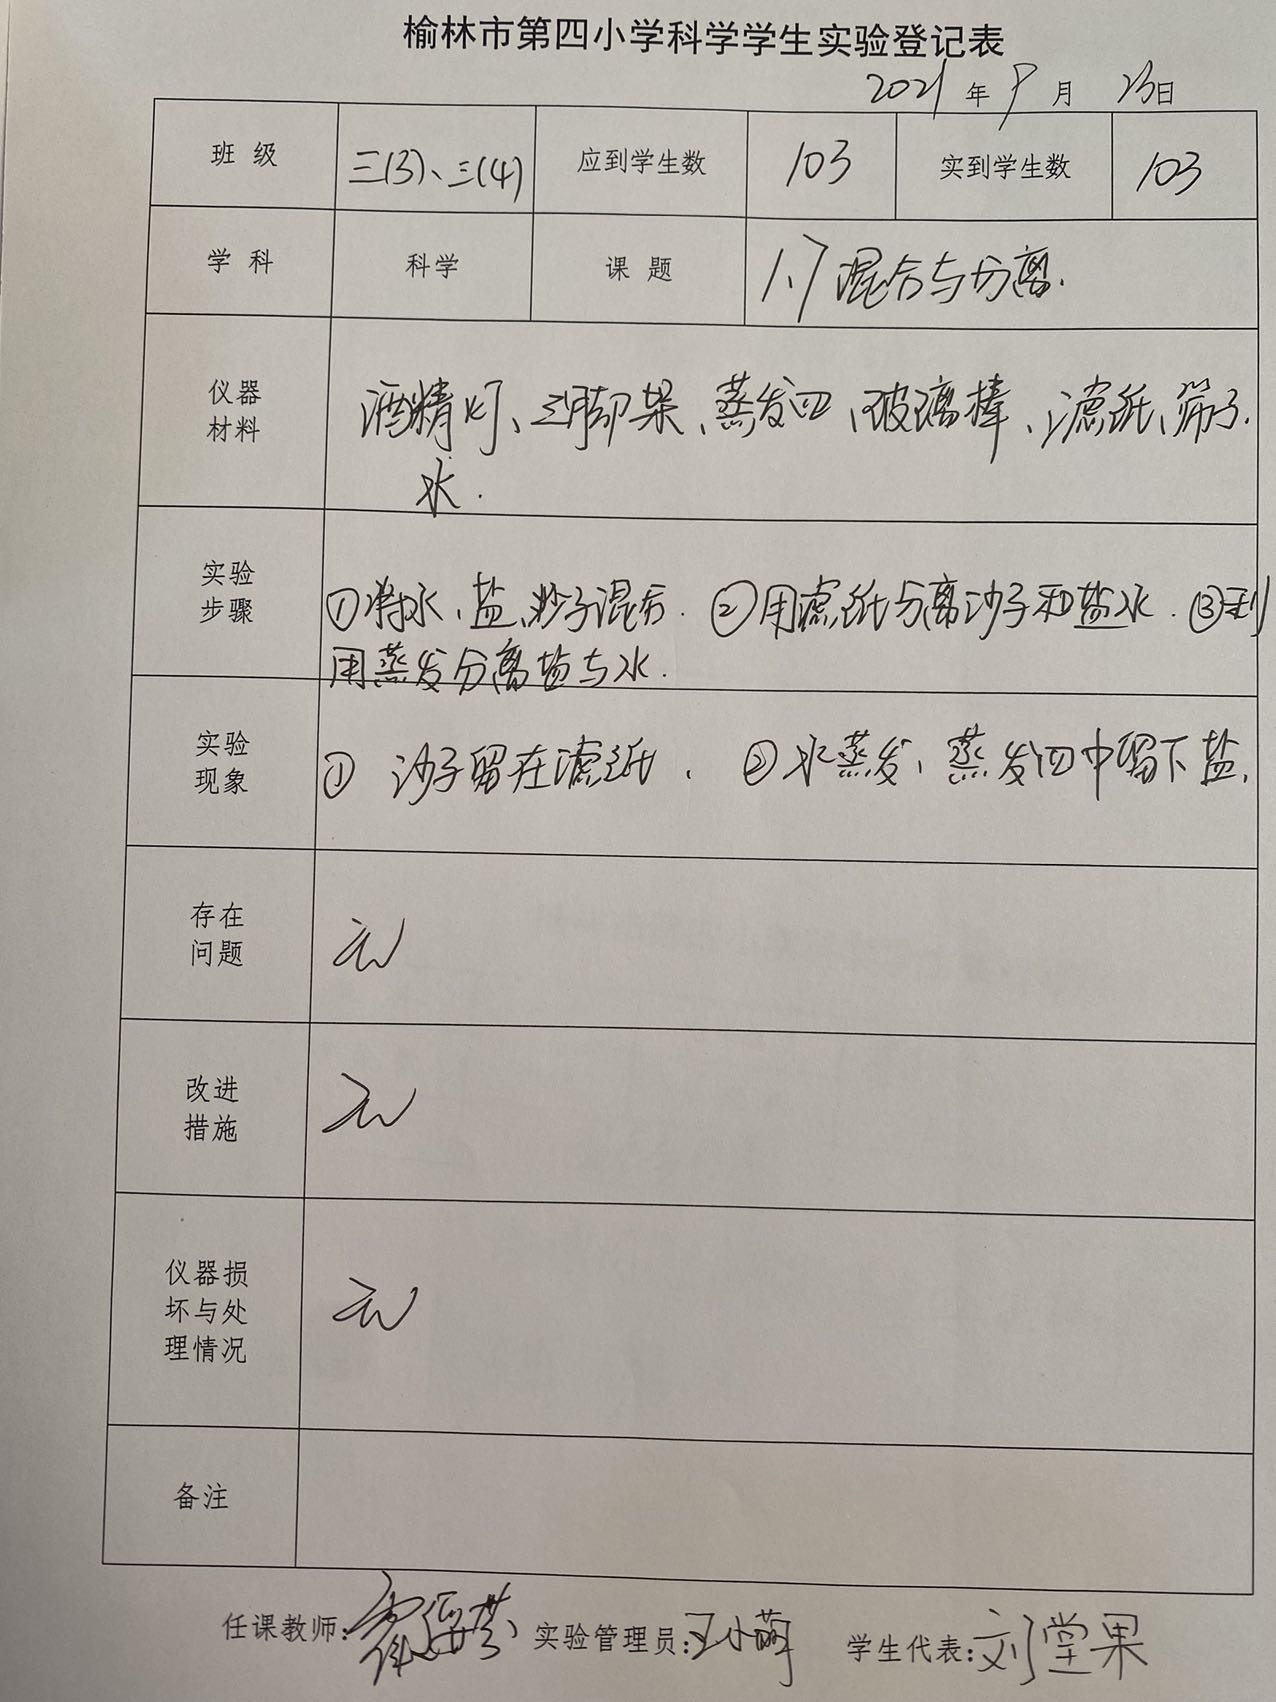 榆林市第四小学科学学生实验登记表
2021年9月23日
班级 三(3)、三(4) 应到学生数 103 实到学生数 103
学科 科学 课题 1.7混合与分离.
仪器材料 酒精灯、三脚架、蒸发皿、玻璃棒、滤纸、筛子.
水.
实验步骤 ①将水、盐、沙子混合. ②用滤纸分离沙子和盐水. ③利
用蒸发分离盐与水.
实验现象 ① 沙子留在滤纸. ②水蒸发、蒸发皿中留下盐.
存在问题 无
改进措施 无
仪器损坏与处理情况 无
备注
任课教师: 实验管理员:王小萌 学生代表:刘堂果